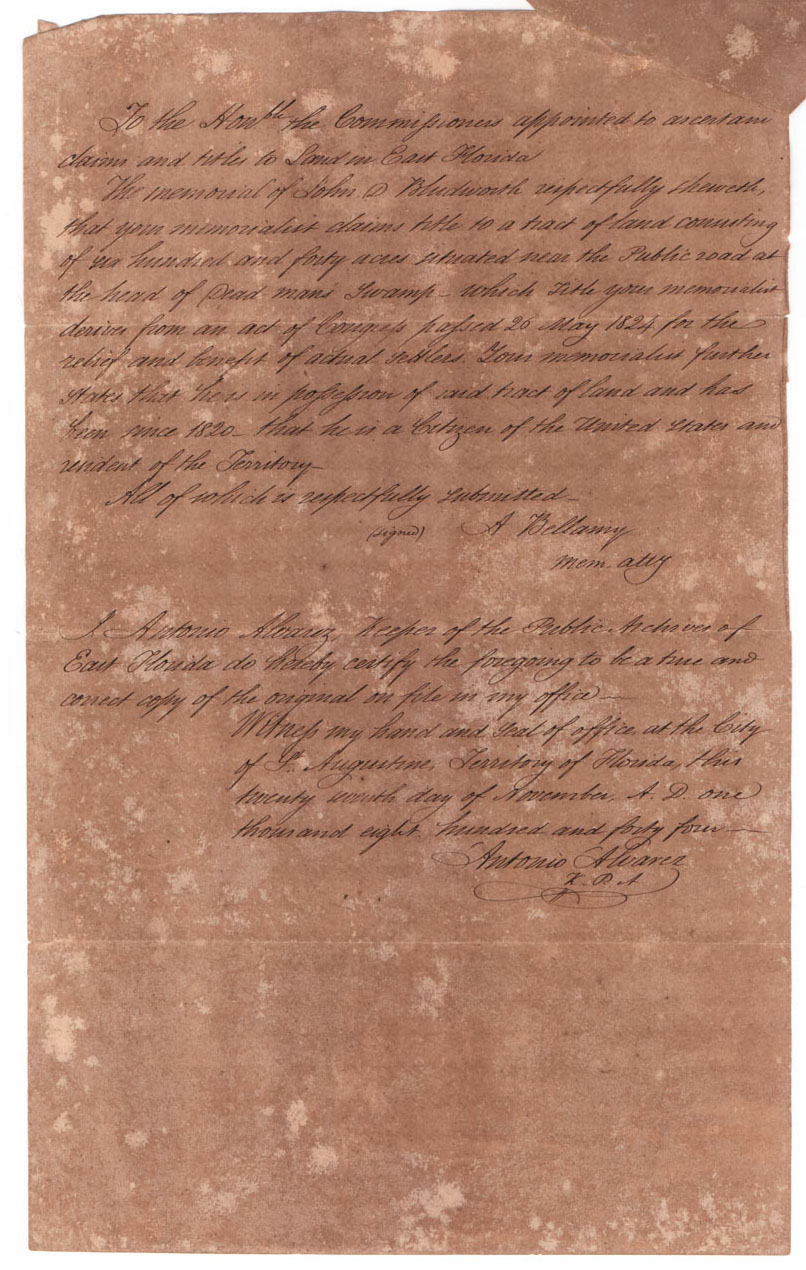 To the Honble the Commissioners appointed to ascertain
claims and titles to Land in East Florida
The memorial of John D Bludworth respectfully sheweth,
that your memorialist claims title to a tract of land consisting
of six hundred and forty acres situated near the Public road at
the head of Dead mans Swamp – which Title your memorialist
derives from an act of Congress passed 26 May 1824 for the
relief and benefit of actual settlers. Your memorialist further
states that he is in possession of said tract of land and has
been since 1820 – that he is a Citizen of the United States and
resident of the Territory –
All of which is respectfully submitted –
(signed) A Bellamy
Mem. atty
I. Antonio Alvarez, Keeper of the Public Archives of
East Florida do hereby certify the foregoing to be a true and
correct copy of the original on file in my office –
Witness my hand and seal of office, at the City
of St. Augustine, Territory of Florida, this
twenty day of November, A. D. one
thousand eight hundred and forty four –
Antonio Alvarez
K. P. A